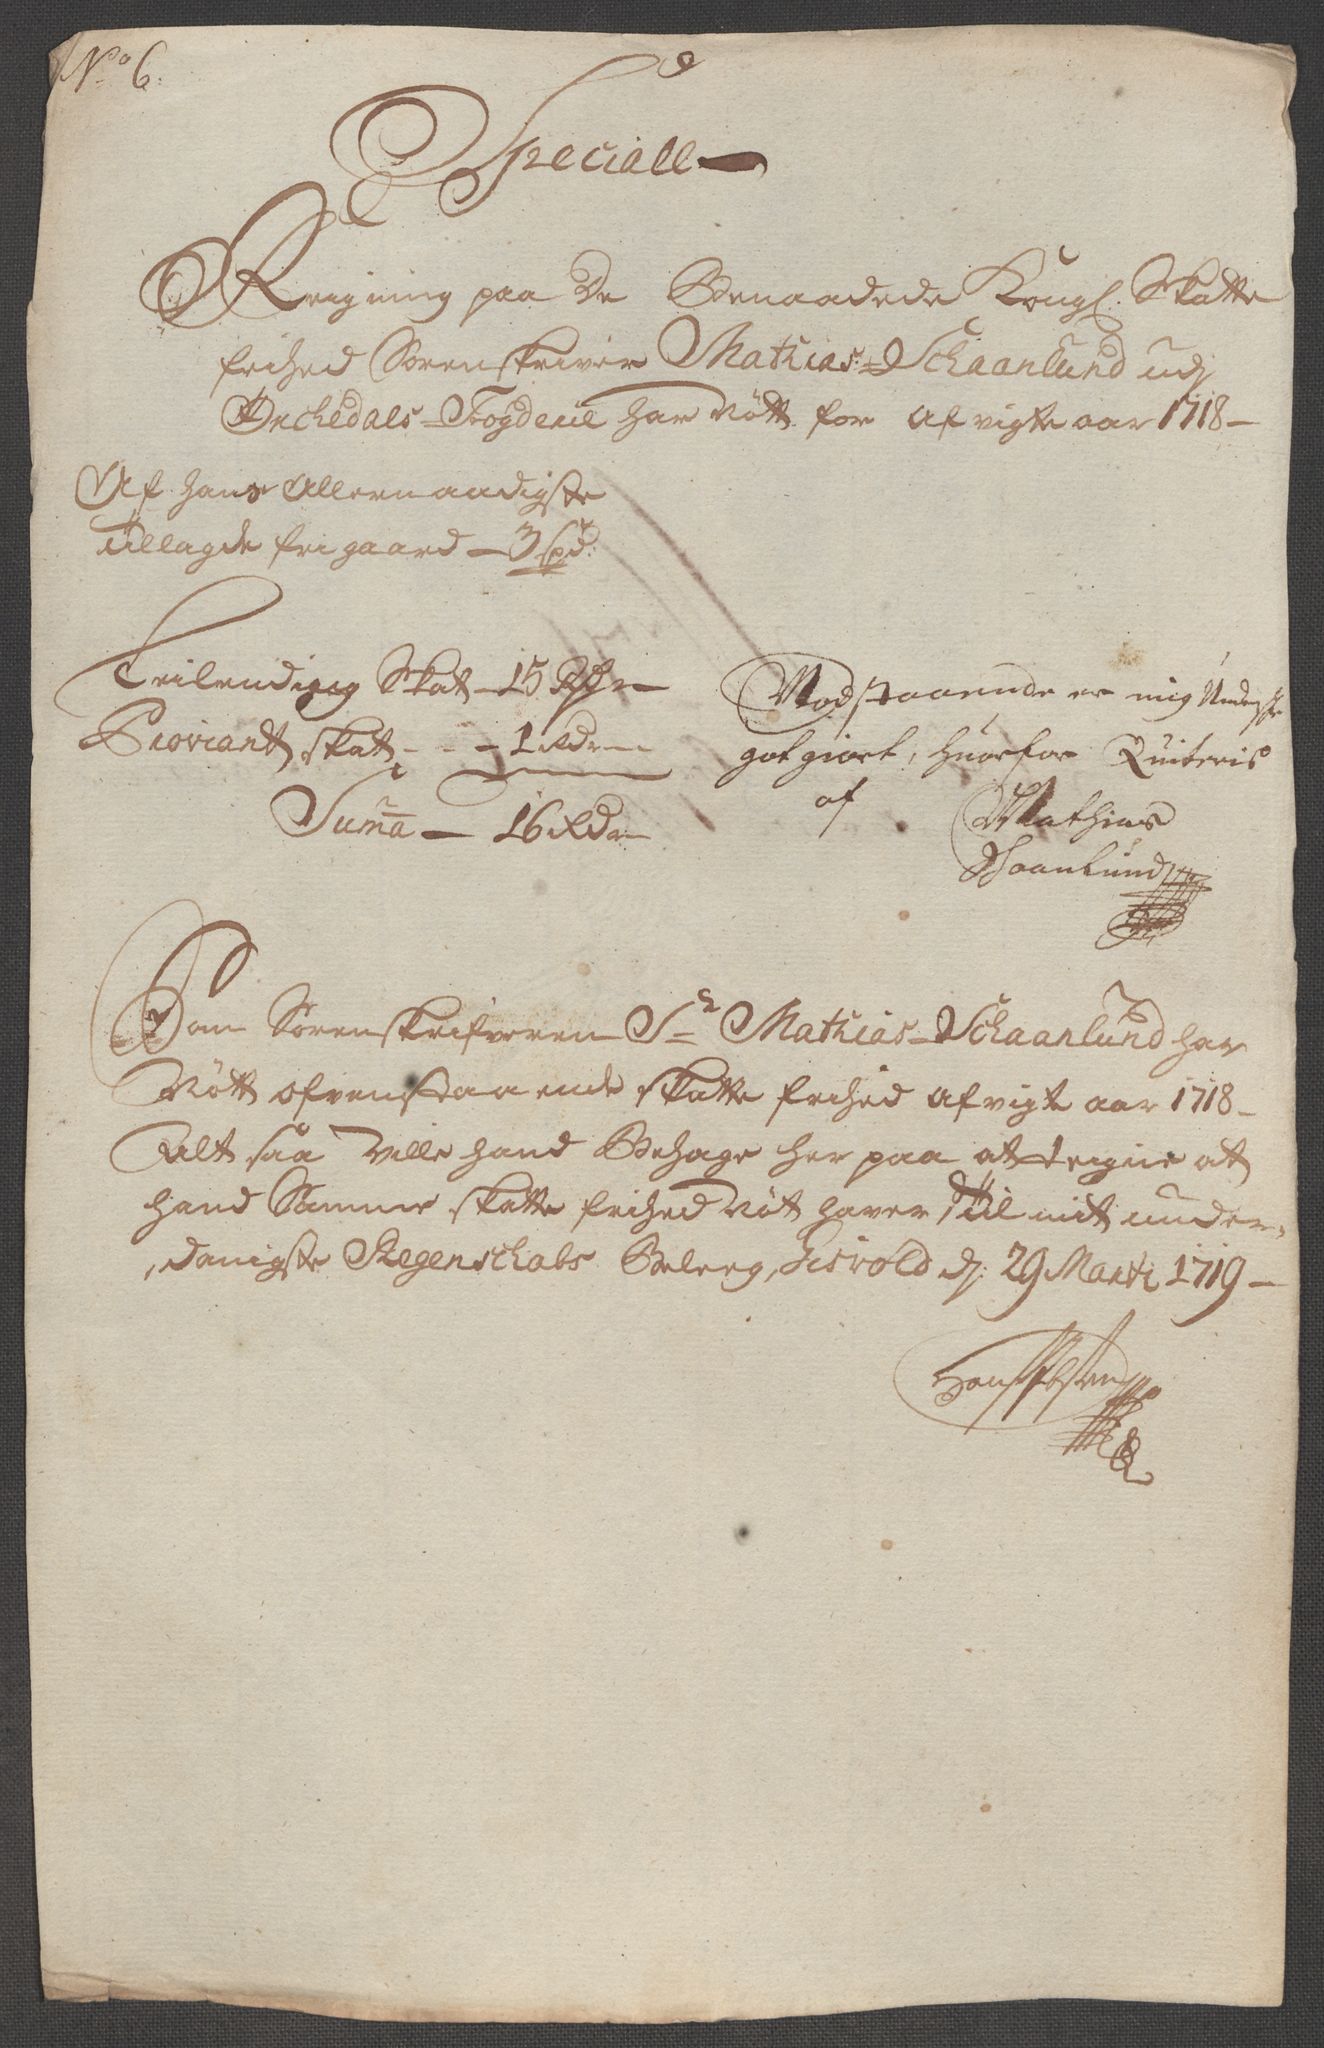 No 6.
Speciall
Reigning paa De Benaadede Kongl. Skatte
frihed Sorenskriver Mathias Schaanlund udj
Orchedals Fogderie har Nött for afvigte aar 1718
Af hans Allernaadigste
tillagde frigaard 3 spd:
Leilendings Skat 15 Rdr
Proviant skat 1 Rdr
Suma 16 Rdr
Modstaaende er mig Underskr.
gotgiort, huorfor Quiteris
af Mathias
Schaanlund
Som Sorenskrifveren Sr Mathias Schaanlund har
Nött ofvenstaaende skatte frihed afvigte aar 1718
Alt saa ville hand Behage her paa at teigne at
hand Samme skatte frihed Nöt haver, til mit under-
danigste Regenschabs Beleeg, d: 29 Marti 1719